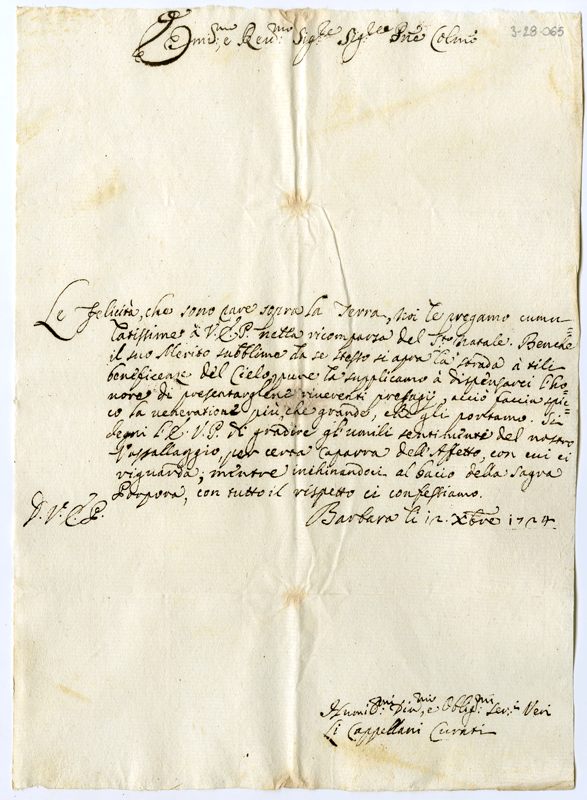 Em.mo e Reu.mo Sig.re Sig.re Pne Colmo
3-28-065
Le Felicità, che sono rare sopra la Terra, Noi le pregamo cumu=
latissime à V.E.P. nella ricomparza del S.to Natale. Benche
il suo Merito subblime da se stesso si apra la strada à tili
beneficenze del Cielo, pure la supplicamo à dispensarci l'ho
nore di presentarglene riuerenti presagi, acciò faccia spic=
co la ueneratione più, che grande, che gli portamo. Si
degni l'E.V.P. di gradire gl'umili sentimenti del nostro
Vassallaggio, per certa caparra dell'Affetto, con cui ci
riguarda; mentre inchinandoci al bacio della Sagra
Porpora, con tutto il rispetto ci confessiamo.
D. V.E.P.
Barbara li 12. Xbre 1724
Humi.mi Diu.mi, e Oblig.mi Ser.ri Veri
Li Cappellani Curati